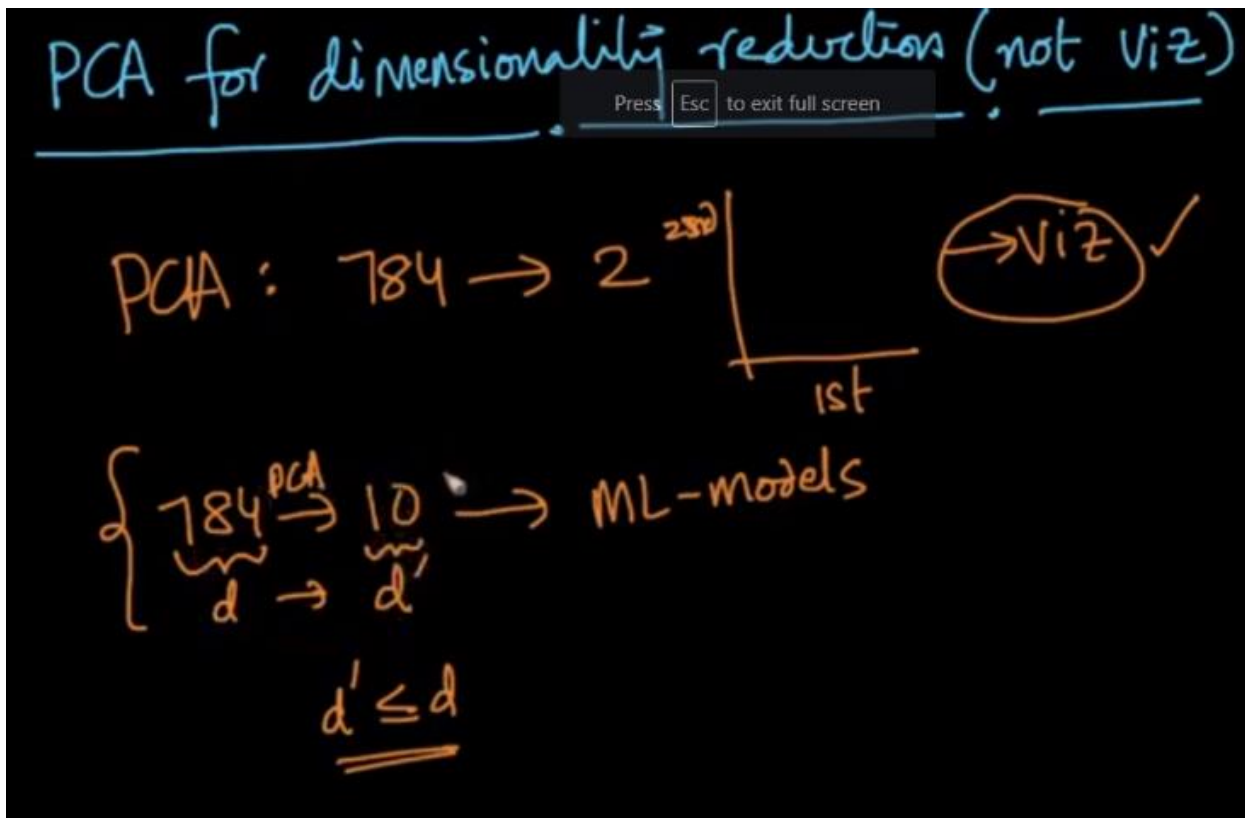 PCA for dimensionality reduction (not viz)
Press Esc to exit full screen
PCA : 784 → 2 2nd → viz ✓
1st
784 PCA → 10 → ML-models
d → d'
d' ≤ d